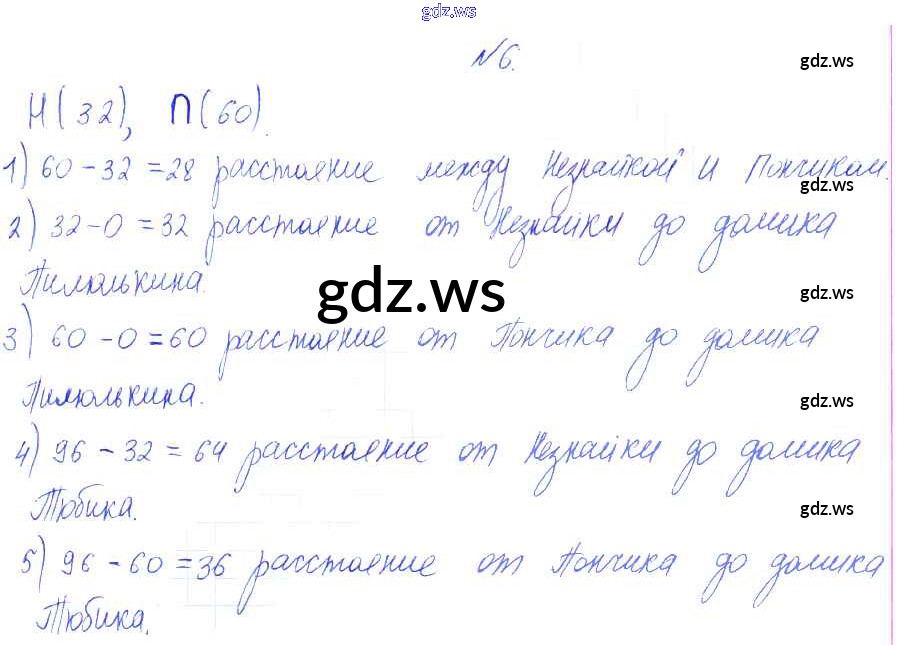 gdz.ws
№6.
gdz.ws
Н(32), П(60).
1) 60 - 32 = 28 расстояние между Незнайкой и Пончиком.
gdz.ws
2) 32 - 0 = 32 расстояние от Незнайки до домика
Пилюлькина.
gdz.ws
gdz.ws
3) 60 - 0 = 60 расстояние от Пончика до домика
Пилюлькина.
gdz.ws
4) 96 - 32 = 64 расстояние от Незнайки до домика
Тюбика.
gdz.ws
5) 96 - 60 = 36 расстояние от Пончика до домика
Тюбика.